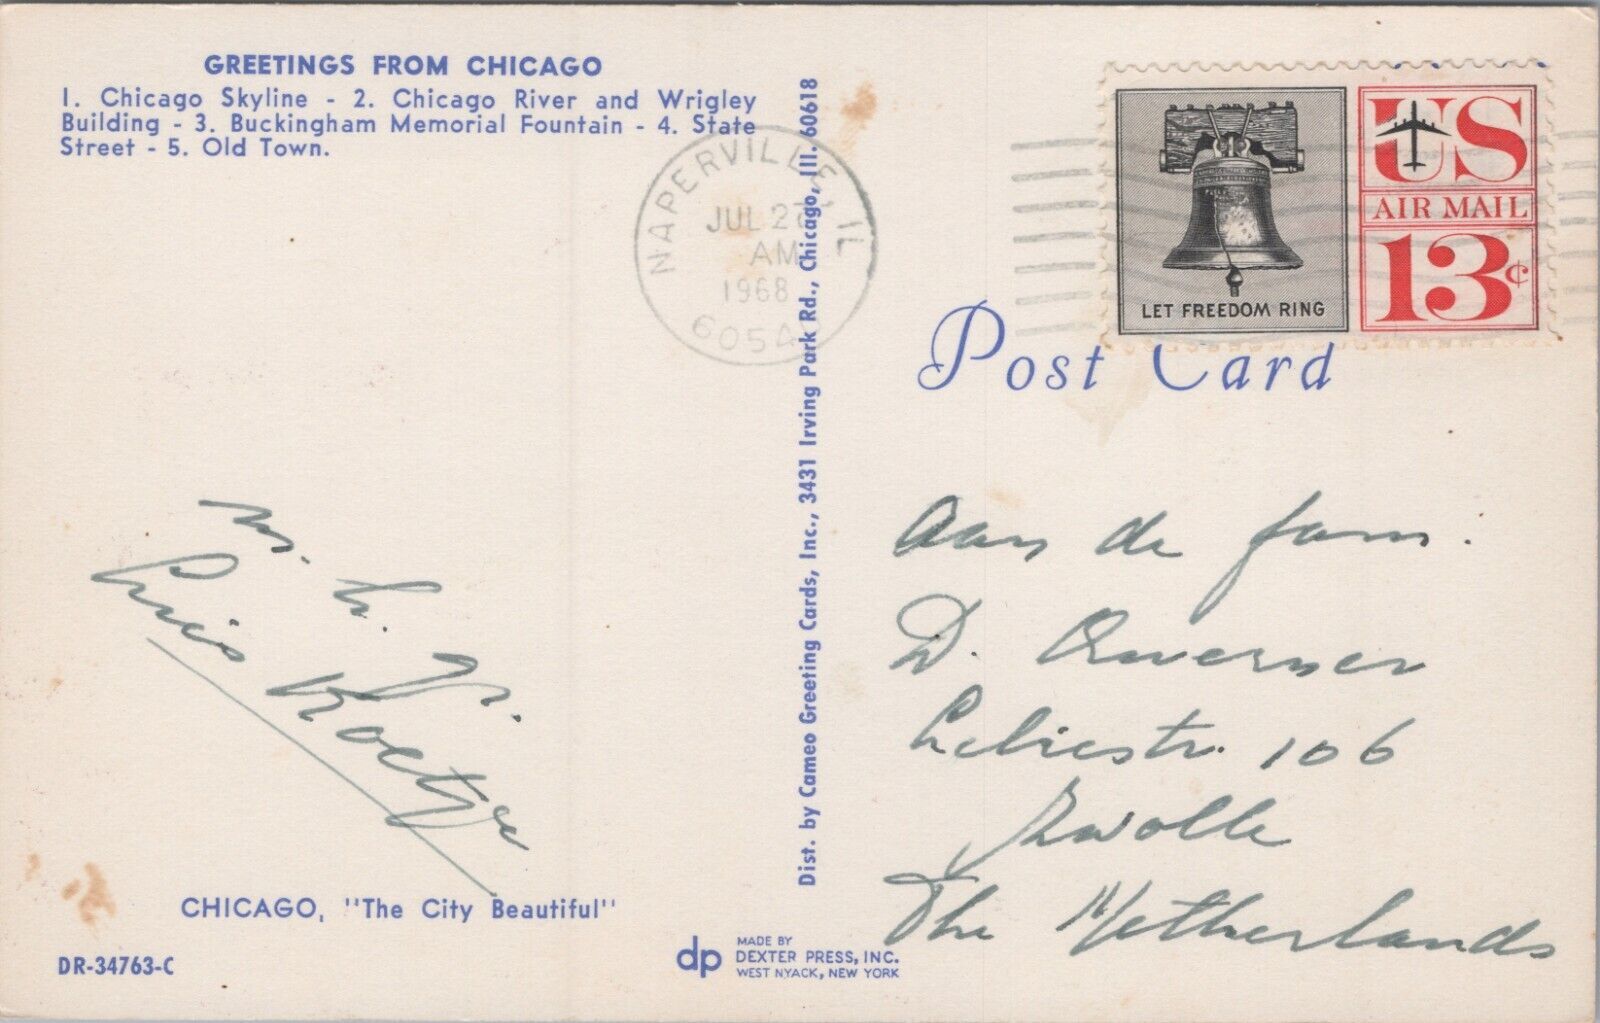 GREETINGS FROM CHICAGO
1. Chicago Skyline - 2. Chicago River and Wrigley
Building - 3. Buckingham Memorial Fountain - 4. State
Street - 5. Old Town.
NAPERVILLE, IL
JUL 27
AM
1968
6054
Dist. by Cameo Greeting Cards, Inc., 3431 Irving Park Rd., Chicago, Ill. 60618
LET FREEDOM RING
US
AIR MAIL
13¢
Post Card
Aan de fam.
D.
106
Zwolle
The Netherlands
Koetze
CHICAGO, "The City Beautiful"
DR-34763-C
dp
MADE BY
DEXTER PRESS, INC.
WEST NYACK, NEW YORK